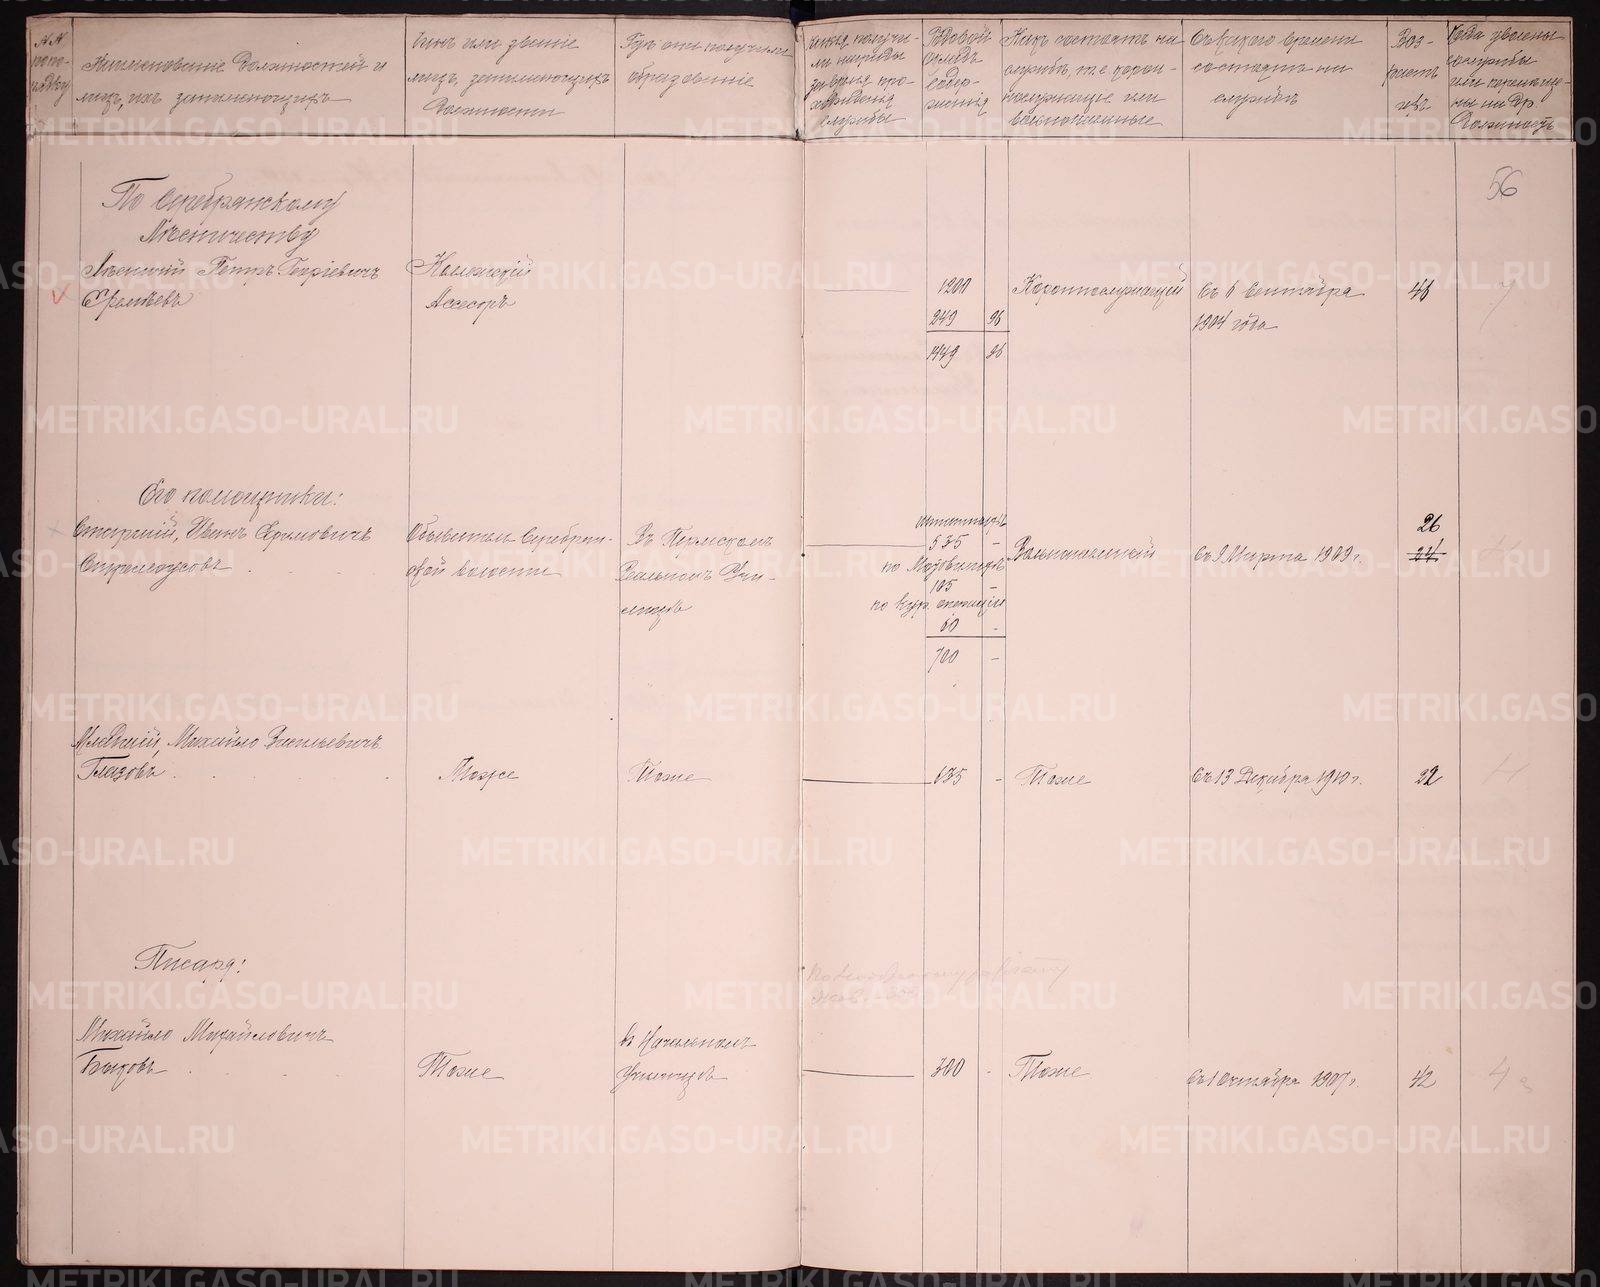 №№ по по-
рядку
Наименованiе Должностей и
лицъ, ихъ занимающихъ
Чинъ или званiе
лицъ, занимающихъ
Должности
Гдѣ они получили
образованiе
Какiя получи-
ли награды
за время про-
хожденiя
службы
Годовой
окладъ
содер-
жанiя
Какъ состоятъ на
службѣ, т. е. корон-
нослужащiе или
вольнонаемные
Съ какого времени
состоятъ на
службѣ
Воз-
растъ
ихъ
Когда уволены
службы
или перемеще-
ны на др.
Должность
56
По Серебрянскому
Лѣсничеству
Лѣсничiй Петръ Георгiевичъ
Еремѣевъ
Коллежскiй
Ассесоръ
1200
249 96
1449 96
Короннослужащiй
Съ 6 Сентября
1904 года
46
Его помощники:
Старшiй, Иванъ Ефимовичъ
Страмоусовъ
Обыватель Серебрян-
ской волости
Въ Пермскомъ
Реальномъ Учи-
лищѣ
535 -
105 -
60 -
700 -
Вольнонаемный
Съ 9 Марта 1909 г.
26
24
Младшiй, Михайло Васильевичъ
Глазовъ
Тоже
Тоже
635 -
Тоже
Съ 13 Декабря 1910 г.
22
Писарь:
Михайло Михайловичъ
Быковъ
Тоже
въ Начальномъ
Училищѣ
300 -
Тоже
Съ 1 Октября 1907 г.
42
METRIKI.GASO-URAL.RU